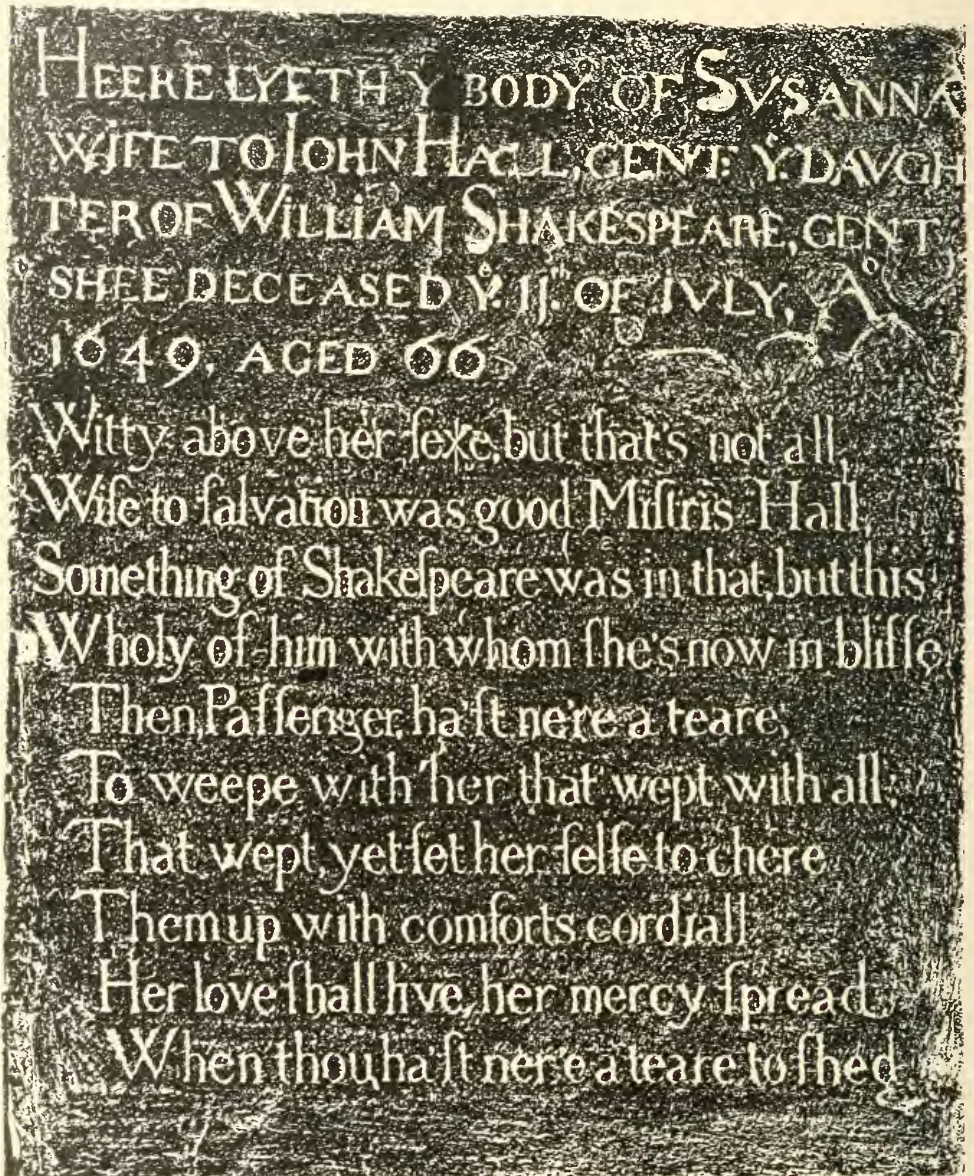 HEERE LYETH Yͤ BODY OF SVSANNA
WIFE TO IOHN HALL, GENT: Yͤ. DAVGH
TER OF WILLIAM SHAKESPEARE, GENT
SHEE DECEASED Yͤ. IJͭͪ. OF IVLY, Aͦ
1649, AGED 66
Witty above her ſexe, but that's not all,
Wiſe to ſalvation was good Miſtris Hall,
Something of Shakeſpeare was in that, but this
Wholy of him with whom ſhe's now in bliſſe.
Then, Paſſenger, ha'ſt ne're a teare,
To weepe with her that wept with all;
That wept, yet ſet her ſelfe to chere
Them up with comforts cordiall
Her love ſhall live, her mercy ſpread,
When thou ha'ſt ner'e a teare to ſhed